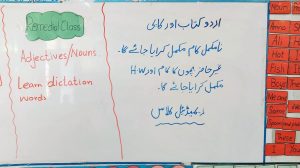 Remedial Class
Adjectives/Nouns
Learn dictation
words
اردو کتاب اور کاپی
نامکمل کام مکمل کرایا جائے گا۔
غیر حاضر بچوں کا کام اور H.w
مکمل کرایا جائے گا۔
ریمیڈیل کلاس
Noun
Ali
Hot
Fish
Boys
We are